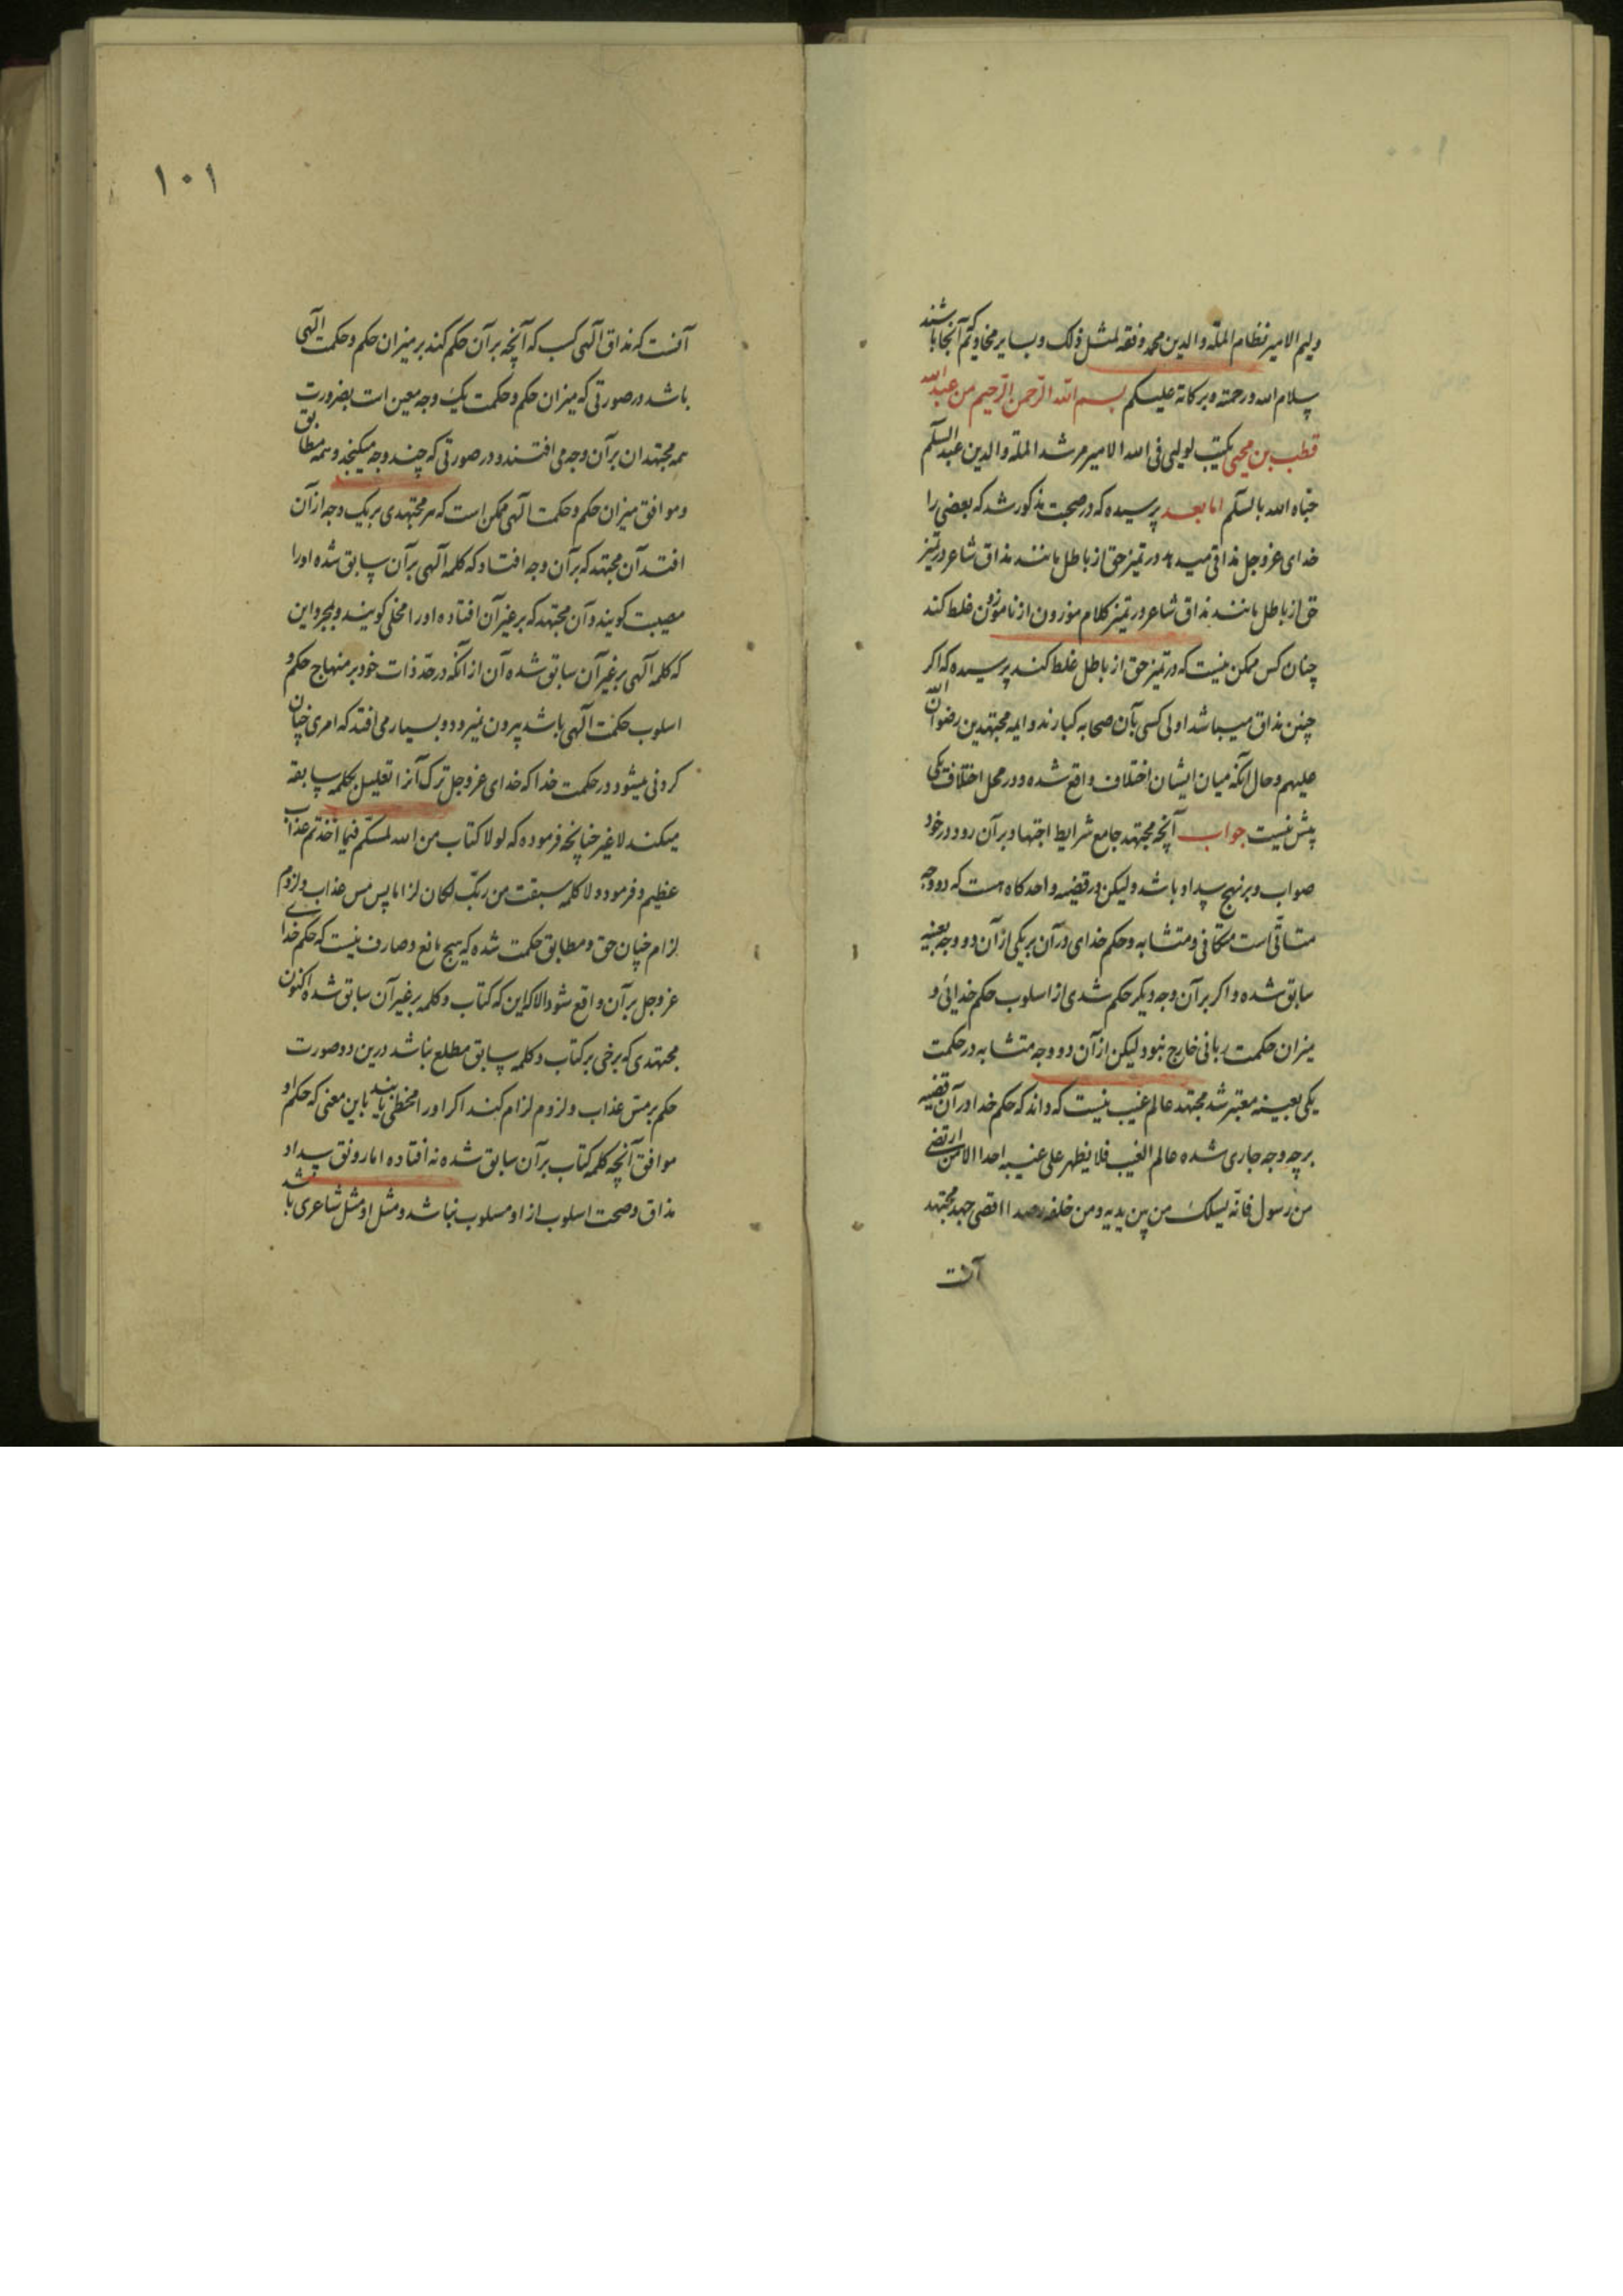 ولیم الامیر نظام الملة والدین محمد وفقه لمثل ذلک و بسایر مخادیم که آنجا باشند
سلام الله ورحمته وبرکاته علیکم بسم الله الرحمن الرحیم من عبدالله
قطب بن محیی یکتب لولیی فی الله الامیر مرشد الملة والدین عبدالسلم
حیاه الله بالسلم اما بعد پرسیده که در صحبت مذکور شد که بعضی را
خدای عزوجل مذاقی میدهد در تمیز حق از باطل مانند مذاق شاعر در تمیز
حق از باطل مانند مذاق شاعر در تمیز کلام موزون از ناموزون غلط کند
چنان کس ممکن نیست که در تمیز حق از باطل غلط کند پرسیده که اکر
چنین مذاق میباشد اولی کسی بآن صحابه کبارند و ایمه مجتهدین رضوان الله
علیهم و حال آنکه میان ایشان اختلاف واقع شده و در محل اختلاف یکی
پیش نیست جواب آنچه مجتهد جامع شرایط اجتهاد بر آن رود در خود
صواب و بر نهج سداد باشد ولیکن در قضیه واحد کاه هست که دو وجه
متاتی است متکافی و متشابه و حکم خدای در آن بر یکی از آن دو وجه بعینه
سابق شده و اکر بر آن وجه دیکر حکم شدی از اسلوب حکم خدائی و
میزان حکمت ربانی خارج نبود لیکن از آن دو وجه متشابه در حکمت
یکی بعینه معتبر شد مجتهد عالم غیب نیست که داند که حکم خدا در آن قضیه
بر چه وجه جاری شده عالم الغیب فلا یظهر علی غیبه احدا الا من ارتضی
من رسول فانه یسلک من بین یدیه و من خلفه رصدا اقصی جهد مجتهد
آنست
۱۰۱
آنست که مذاق آلهی کسب که آنچه بر آن حکم کند بر میزان حکم و حکمت الهی
باشد در صورتی که میزان حکم و حکمت یک وجه معین است بضرورت
همه مجتهدان بر آن وجه می افتند و در صورتی که چند وجه میکنجد و همه مطابق
و موافق میزان حکم و حکمت آلهی ممکن است که هر مجتهدی بر یک وجه از آن
افتد آن مجتهد که بر آن وجه افتاد که کلمه آلهی بر آن سابق شده او را
مصیب کویند و آن مجتهد که بر غیر آن افتاده او را مخطی کویند و بمجرد این
که کلمه آلهی بر غیر آن سابق شده آن از آنکه در حد ذات خود بر منهاج حکم و
اسلوب حکمت آلهی باشد بیرون نمیرود و بسیار می افتد که امری چنان
کردنی میشود در حکمت خدا که خدای عزوجل ترک آنرا تعلیل بکلمه سابقه
میکند لا غیر چنانچه فرموده که لولا کتاب من الله لمسکم فیما اخذتم عذاب
عظیم و فرمود و لا کلمه سبقت من ربک لکان لزاما پس مس عذاب و لزوم
لزام چنان حق و مطابق حکمت شده که هیچ مانع و صارف نیست که حکم خدای
عزوجل بر آن واقع شود الا این که کتاب و کلمه بر غیر آن سابق شده اکنون
مجتهدی که برخی بر کتاب و کلمه سابق مطلع نباشد درین دو صورت
حکم بر مس عذاب و لزوم لزام کند اکر او را مخطی یابند باین معنی که حکم او
موافق آنچه کلمه کتاب بر آن سابق شده نه افتاده اما رونق سداد
مذاق و صحت اسلوب از او مسلوب نباشد و مثل او مثل شاعری باشد